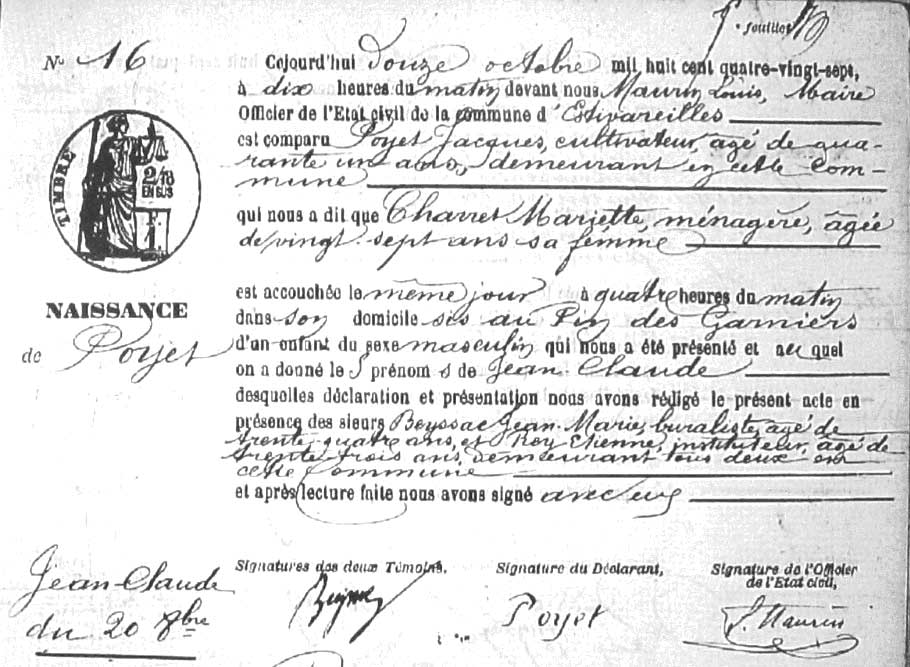 feuillet
Nº 16
Cejourd'hui douze octobre mil huit cent quatre-vingt-sept,
à dix heures du matin devant nous Maurin Louis, Maire
Officier de l'Etat civil de la commune d'Estivareilles
est comparu Poyet Jacques, cultivateur, agé de qua-
rante un ans, demeurant en cette Com-
mune
qui nous a dit que Charret Mariette, ménagère, agée
de vingt-sept ans sa femme
est accouchée le même jour à quatre heures du matin
dans son domicile sis au Pin des Garniers
d'un enfant du sexe masculin qui nous a été présenté et auquel
on a donné les prénoms de Jean-Claude
desquelles déclaration et présentation nous avons rédigé le présent acte en
présence des sieurs Beyssac Jean-Marie, buraliste, agé de
trente-quatre ans, et Roy Etienne, instituteur, agé de
trente-trois ans, demeurant tous deux en
cette Commune
et après lecture faite nous avons signé avec eux
TIMBRE
2/10
EN SUS
F.
1.
NAISSANCE
de Poyet
Jean-Claude
du 20 8bre
Signatures des deux Témoins,
Signature du Déclarant,
Poyet
Signature de l'Officier
de l'Etat civil,
L. Maurin